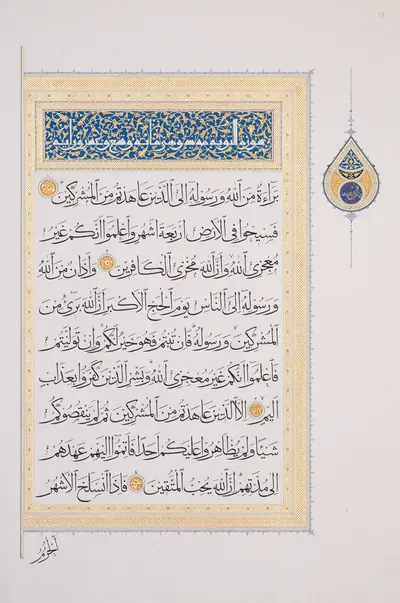 سورة التوبة
بَرَاءَةٌ مِنَ اللهِ وَرَسُولِهِ إِلَى الَّذِينَ عَاهَدْتُمْ مِنَ الْمُشْرِكِينَ
فَسِيحُوا فِي الْأَرْضِ أَرْبَعَةَ أَشْهُرٍ وَاعْلَمُوا أَنَّكُمْ غَيْرُ
مُعْجِزِي اللهِ وَأَنَّ اللهَ مُخْزِي الْكَافِرِينَ وَأَذَانٌ مِنَ اللهِ
وَرَسُولِهِ إِلَى النَّاسِ يَوْمَ الْحَجِّ الْأَكْبَرِ أَنَّ اللهَ بَرِيءٌ مِنَ
الْمُشْرِكِينَ وَرَسُولُهُ فَإِنْ تُبْتُمْ فَهُوَ خَيْرٌ لَكُمْ وَإِنْ تَوَلَّيْتُمْ
فَاعْلَمُوا أَنَّكُمْ غَيْرُ مُعْجِزِي اللهِ وَبَشِّرِ الَّذِينَ كَفَرُوا بِعَذَابٍ
أَلِيمٍ إِلَّا الَّذِينَ عَاهَدْتُمْ مِنَ الْمُشْرِكِينَ ثُمَّ لَمْ يَنْقُصُوكُمْ
شَيْئًا وَلَمْ يُظَاهِرُوا عَلَيْكُمْ أَحَدًا فَأَتِمُّوا إِلَيْهِمْ عَهْدَهُمْ
إِلَى مُدَّتِهِمْ إِنَّ اللهَ يُحِبُّ الْمُتَّقِينَ فَإِذَا انْسَلَخَ الْأَشْهُرُ
الْحُرُمُ